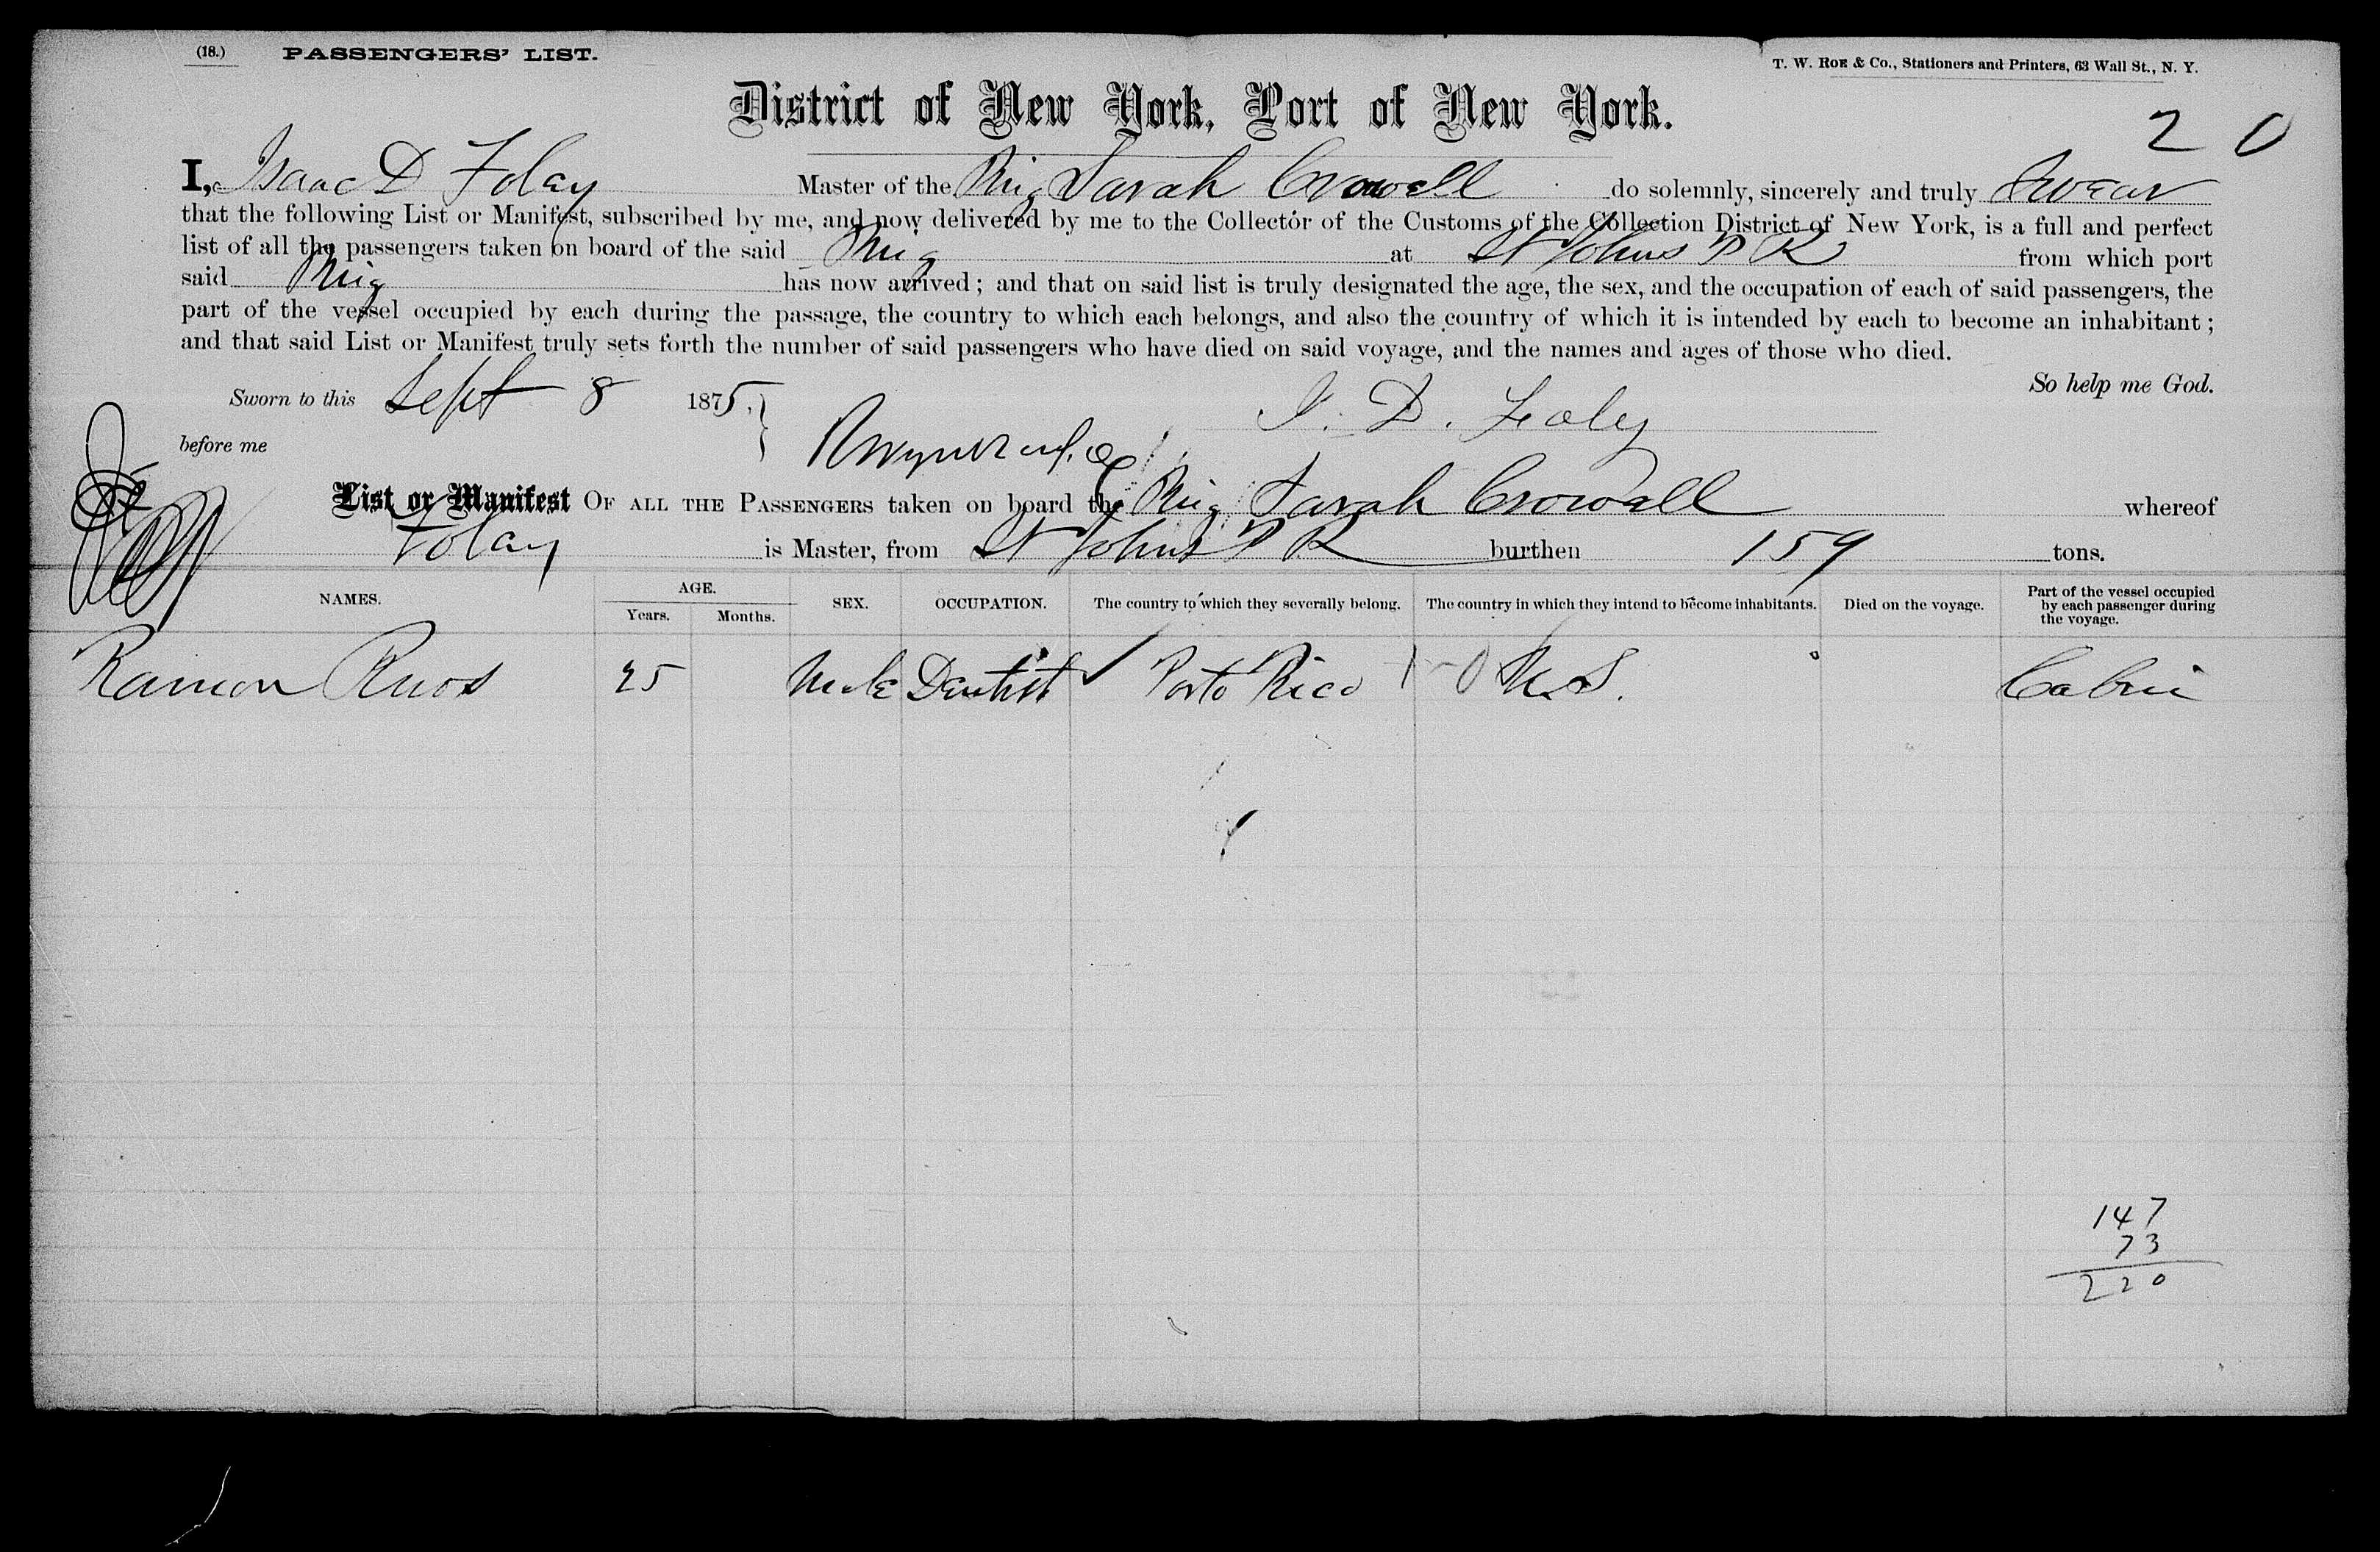 (18.) PASSENGERS' LIST.
T. W. ROE & Co., Stationers and Printers, 63 Wall St., N. Y.
District of New York, Port of New York.
2 0
I, Isaac D Foley Master of the Brig Sarah Crowell do solemnly, sincerely and truly Swear
that the following List or Manifest, subscribed by me, and now delivered by me to the Collector of the Customs of the Collection District of New York, is a full and perfect
list of all the passengers taken on board of the said Brig at St Johns P R from which port
said Brig has now arrived; and that on said list is truly designated the age, the sex, and the occupation of each of said passengers, the
part of the vessel occupied by each during the passage, the country to which each belongs, and also the country of which it is intended by each to become an inhabitant;
and that said List or Manifest truly sets forth the number of said passengers who have died on said voyage, and the names and ages of those who died.
So help me God.
Sworn to this Sept 8 1875,
I. D. Foley
before me
List or Manifest OF ALL THE PASSENGERS taken on board the Brig Sarah Crowell whereof
Foley is Master, from St Johns P R burthen 159 tons.
NAMES. AGE. Years. Months. SEX. OCCUPATION. The country to which they severally belong. The country in which they intend to become inhabitants. Died on the voyage. Part of the vessel occupied by each passenger during the voyage.
Ramon Ruos 25 Male Dentist Porto Rico U.S. Cabin
147
73
220